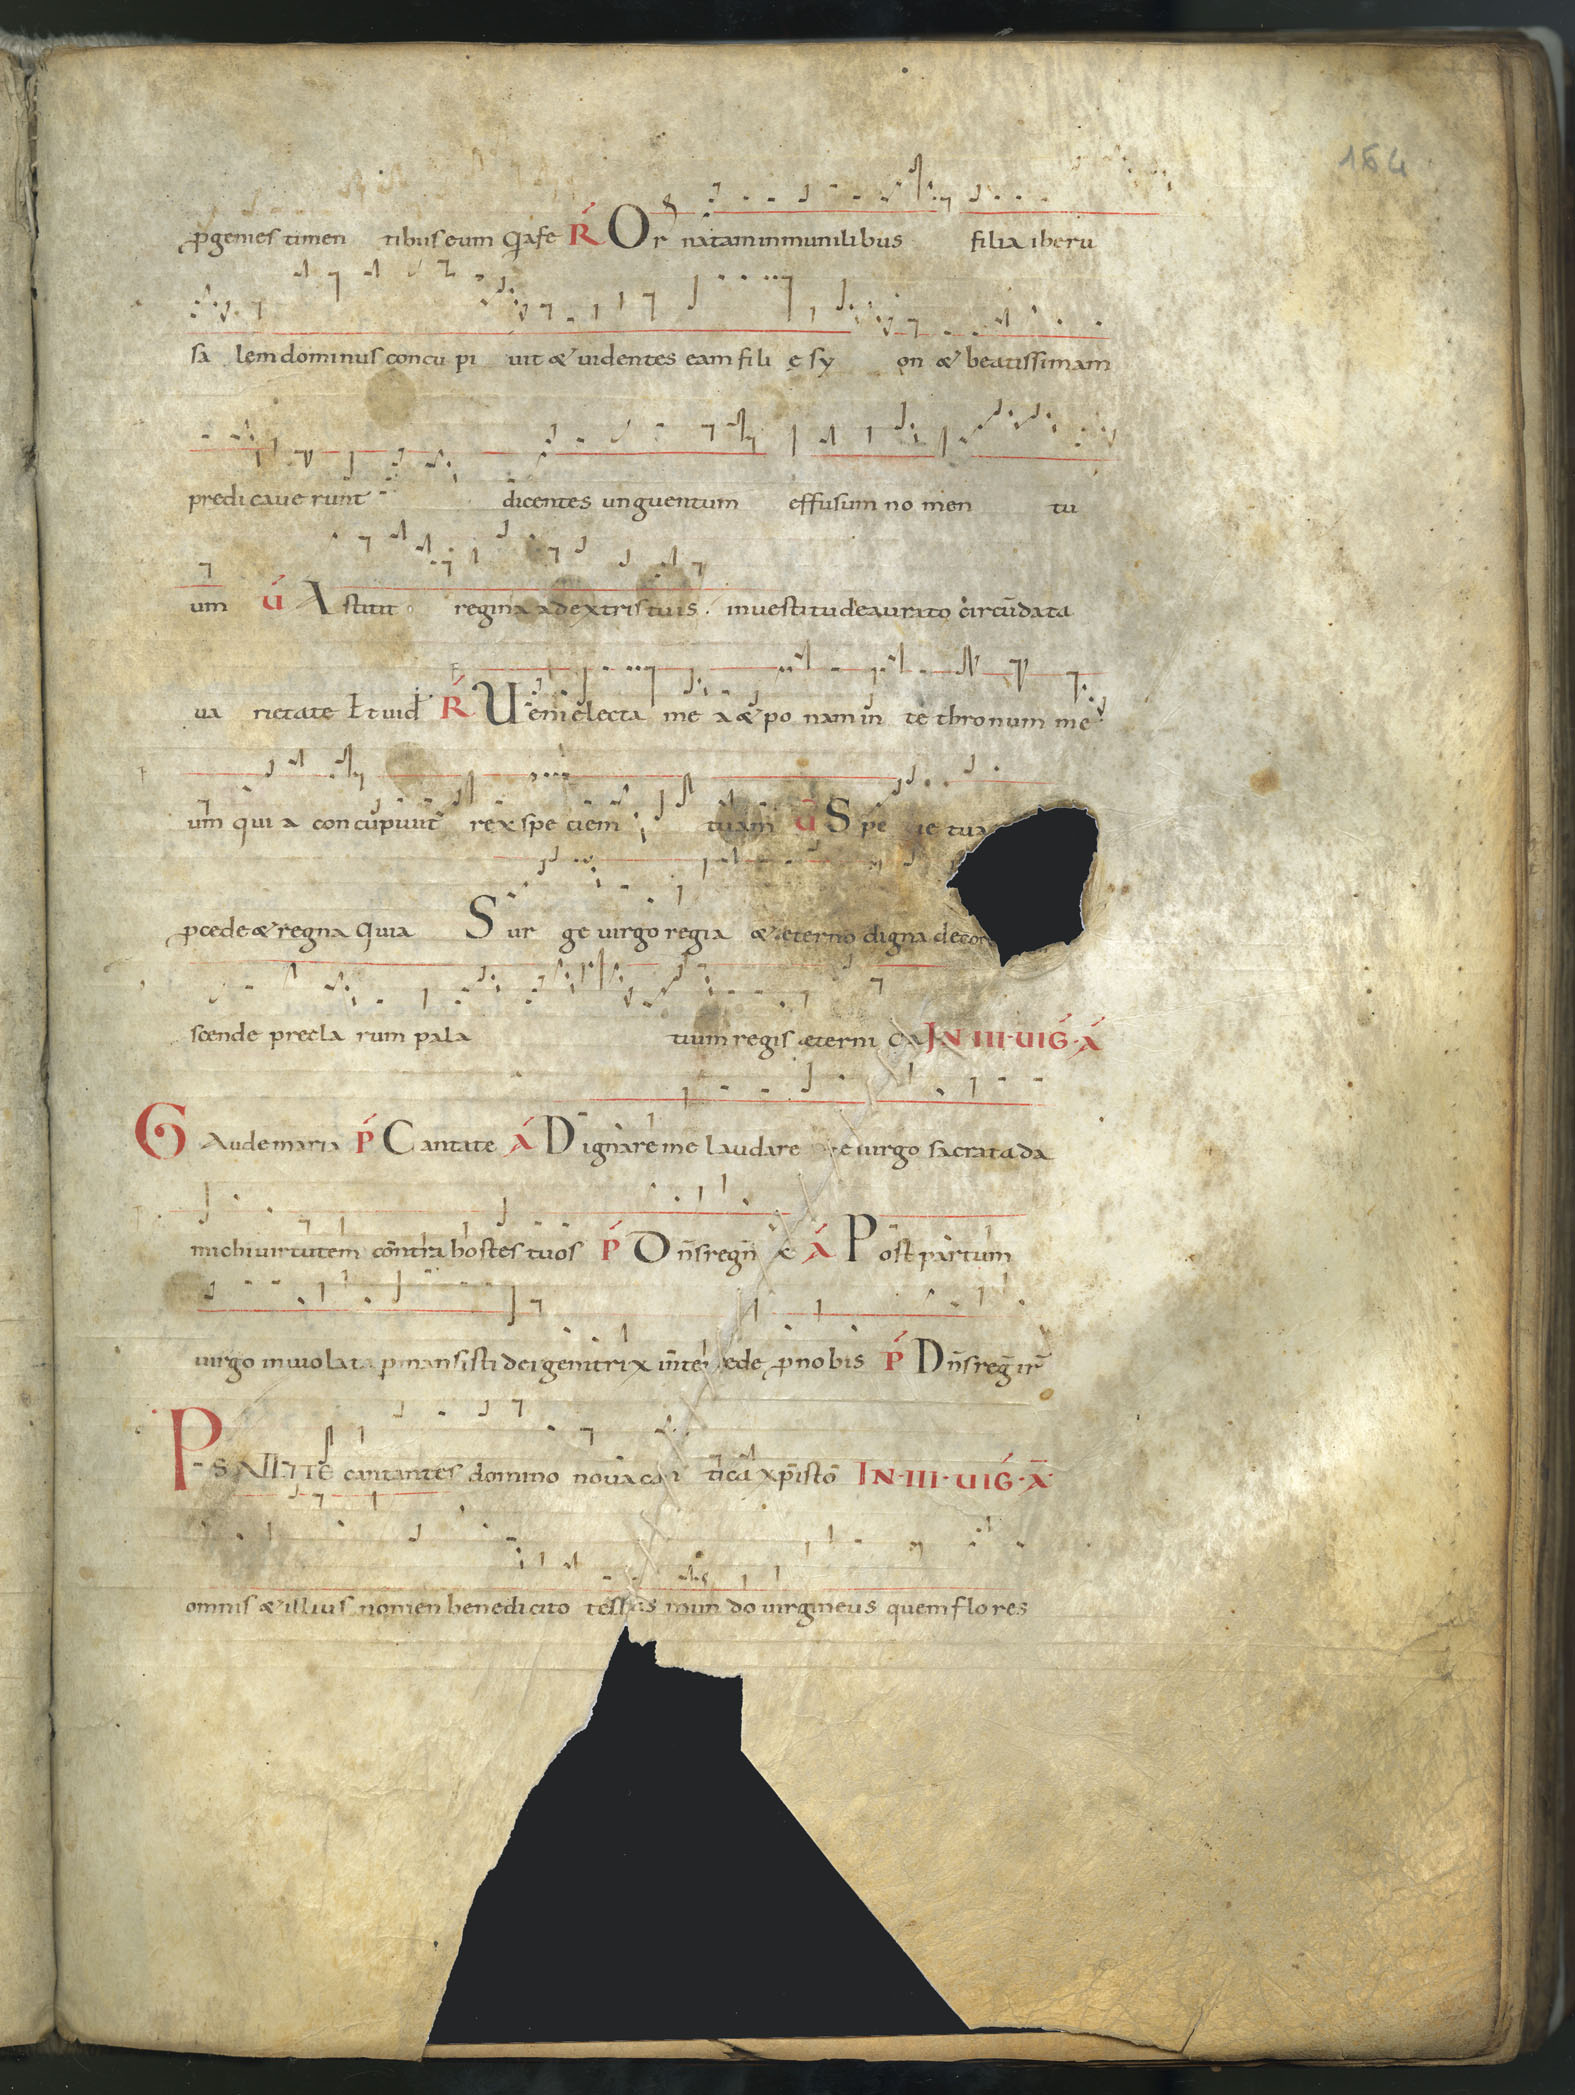 164
ꝓgenies timen tibus eum Q̅a fe R̕ Or natam in munilibus filia iheru
sa lem dominus concu pi uit & uidentes eam fili ę sy on & beatissimam
predi caue runt dicentes unguentum effusum no men tu
um V̕ Astitit regina a dextris tuis. in uestitu deaurato circũdata
ua rietate Et uid̅ R̕ Ueni electa me a & po nam in te thronum me
um qui a concupiuit rex spe ciem tuam V̕ Spe cie tua
ꝓcede & regna Quia Sur ge uirgo regia & æterno digna decor
scende precla rum pala tium regis æterni IN III·UIG̅·A̕
Gaude maria P̕ Cantate A̕ Dignare me laudare te uirgo sacrata da
michi uirtutem contra hostes tuos P̕ Dn̅s regn̅ A̕ Post partum
uirgo inuiolata ꝑmansisti dei genitrix inter ede ꝓ nobis P̕ Dn̅s reg̅ ir̅
PSALLITE cantantes domino noua can tica xp̅isto IN·III·UIG̅·A̅
omnis & illius nomen benedicito mun do uirgineus quem flores